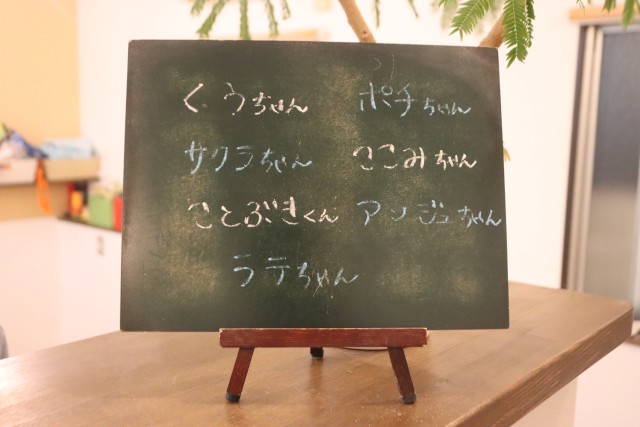 くぅちゃん ポチちゃん
サクラちゃん ここみちゃん
ことぶきくん アンジュちゃん
ラテちゃん